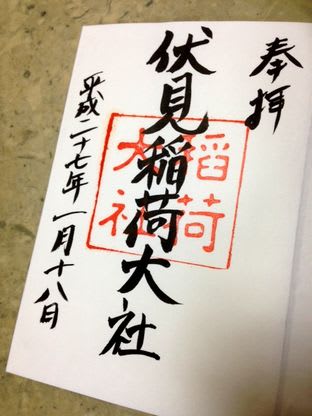 奉拝
伏見稲荷大社
稲荷
大社
平成二十七年一月十八日